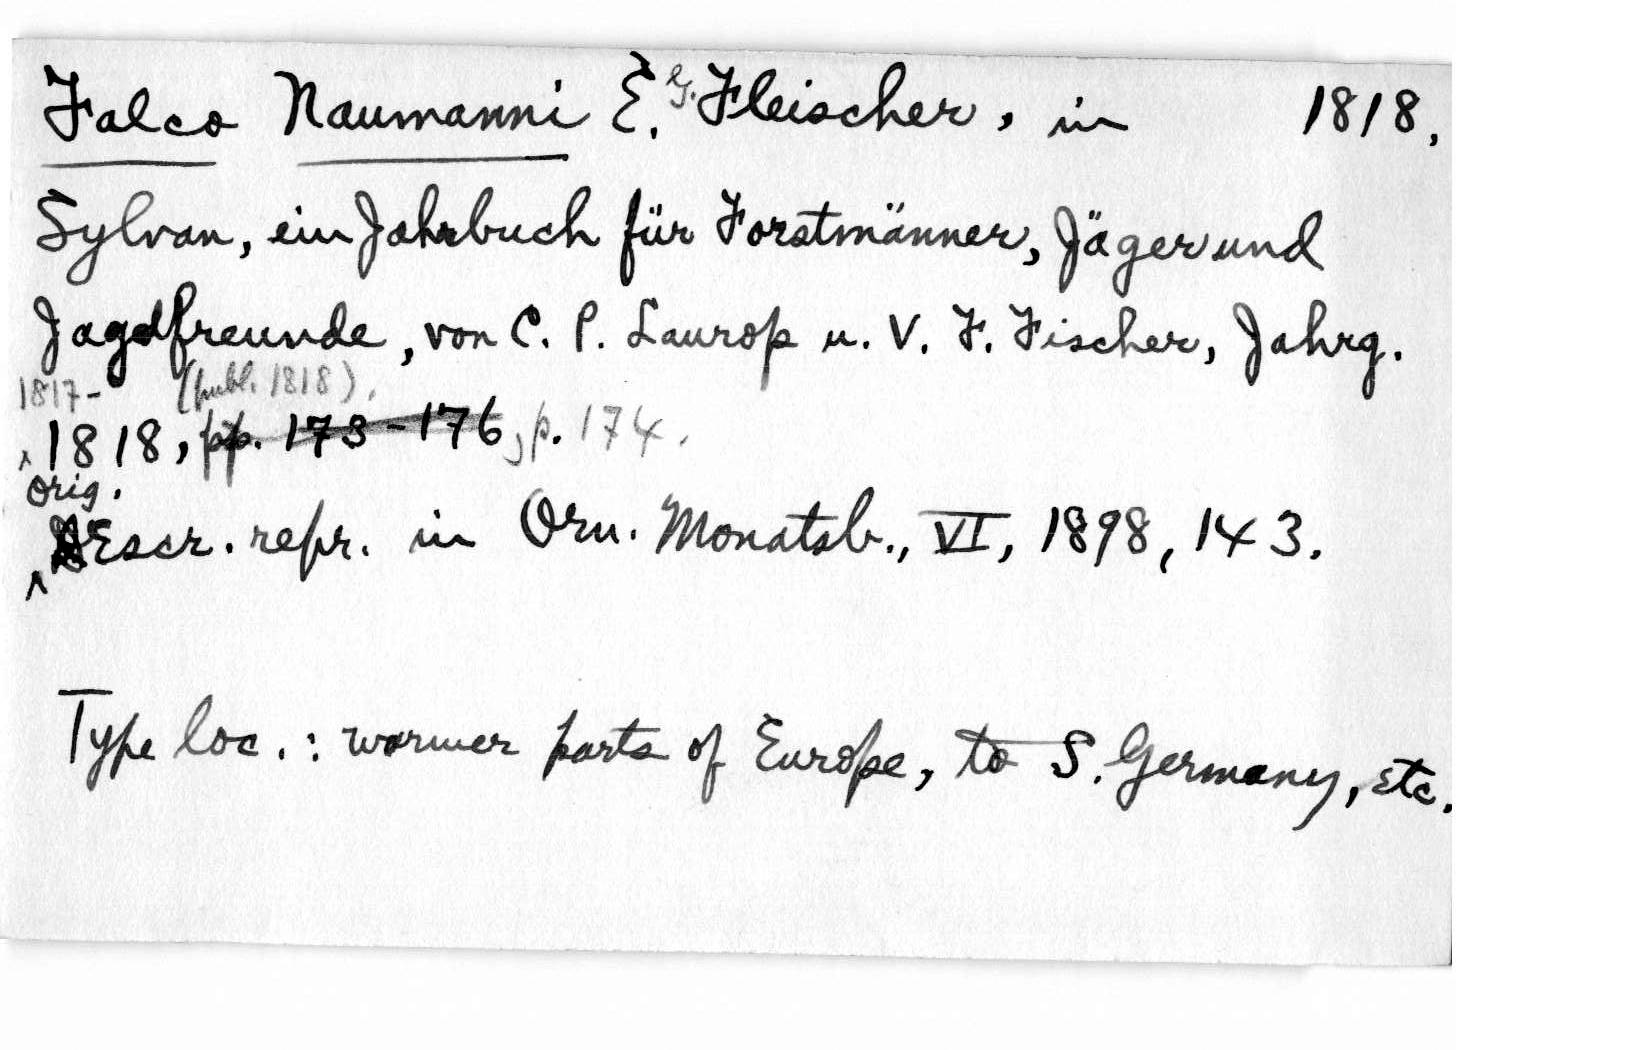 Falco Naumanni E. G. Fleischer, in 1818,
Sylvan, ein Jahrbuch für Forstmänner, Jäger und
Jagdfreunde, von C. P. Laurop u. V. F. Fischer, Jahrg.
1817- (publ. 1818),
1818, pp. 173-176, p. 174.
orig.
descr. repr. in Orn. Monatsb., VI, 1898, 143.
Type loc.: warmer parts of Europe, to S. Germany, etc.